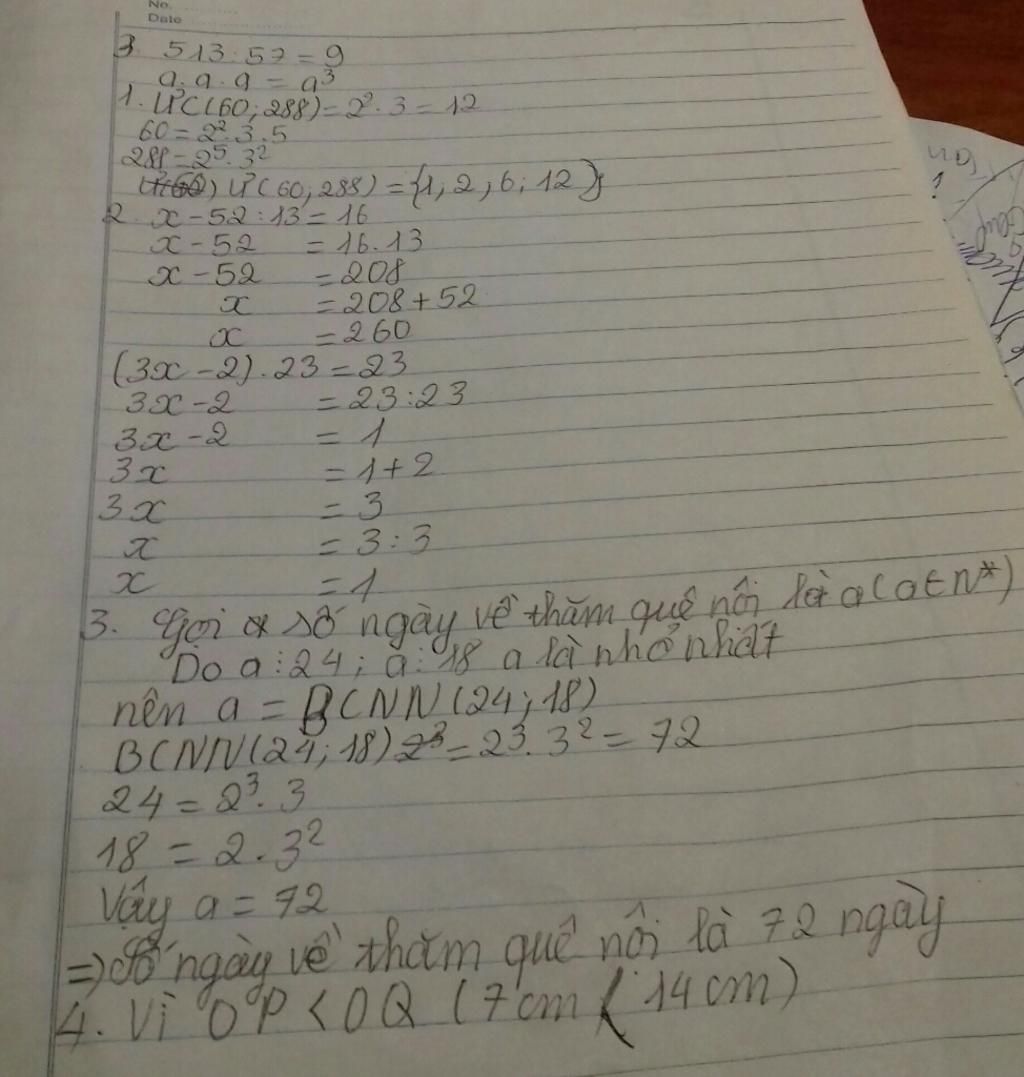 No.
Date
3. 513:57=9
a.a.a = a³
1. ƯC(60; 288)=2².3=12
60=2².3.5
288=2⁵.3²
Ư(60; 288) = {1, 2, 6; 12}
2. x-52:13=16
x-52 =16.13
x-52 =208
x =208+52
x =260
(3x-2).23=23
3x-2 =23:23
3x-2 = 1
3x =1+2
3x = 3
x = 3:3
x =1
3. Gọi số ngày về thăm quê nội là a(a∈N*)
Do a⋮24; a⋮18 a là nhỏ nhất
nên a = BCNN(24; 18)
BCNN(24; 18) = 2³.3² = 72
24 = 2³.3
18 = 2.3²
Vậy a = 72
=) Số ngày về thăm quê nội là 72 ngày
4. Vì OP < OQ (7cm < 14cm)